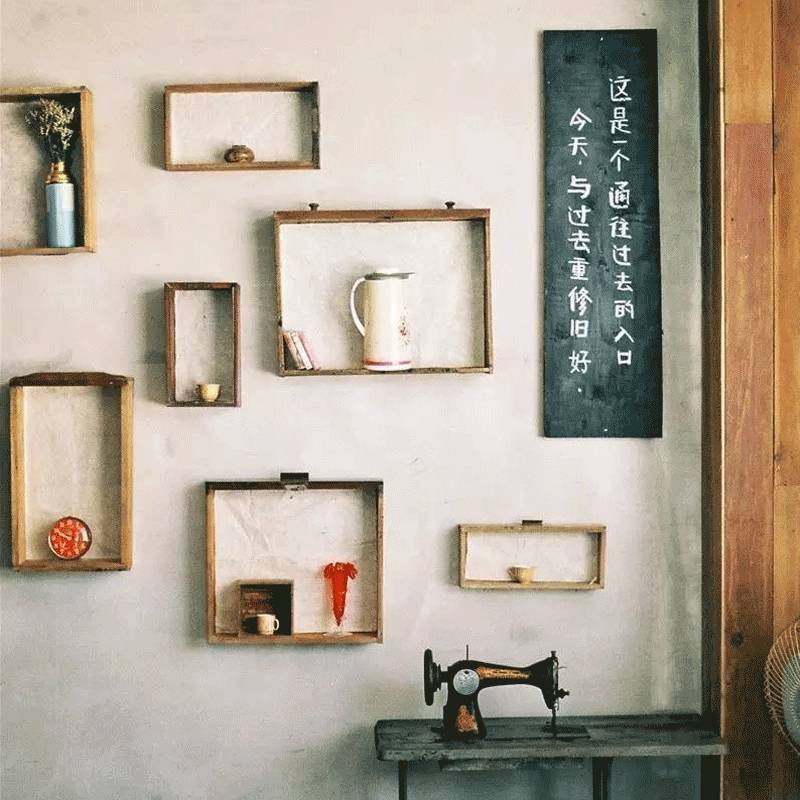 这是一个通往过去的入口
今天，与过去重修旧好.